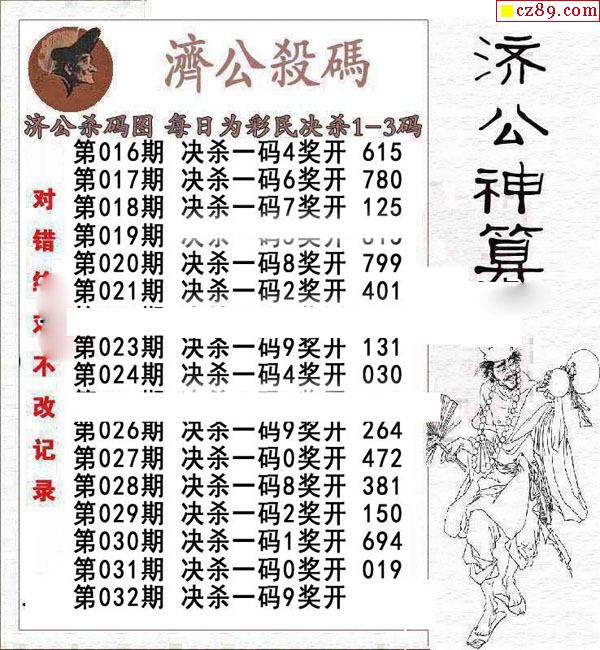 cz89.com
濟公殺碼
济公杀码图 每日为彩民决杀1-3码
第016期 决杀一码4奖开 615
第017期 决杀一码6奖开 780
第018期 决杀一码7奖开 125
第019期
第020期 决杀一码8奖开 799
第021期 决杀一码2奖开 401
第023期 决杀一码9奖开 131
第024期 决杀一码4奖开 030
第026期 决杀一码9奖开 264
第027期 决杀一码0奖开 472
第028期 决杀一码8奖开 381
第029期 决杀一码2奖开 150
第030期 决杀一码1奖开 694
第031期 决杀一码0奖开 019
第032期 决杀一码9奖开
对错 不改记录
济公神算